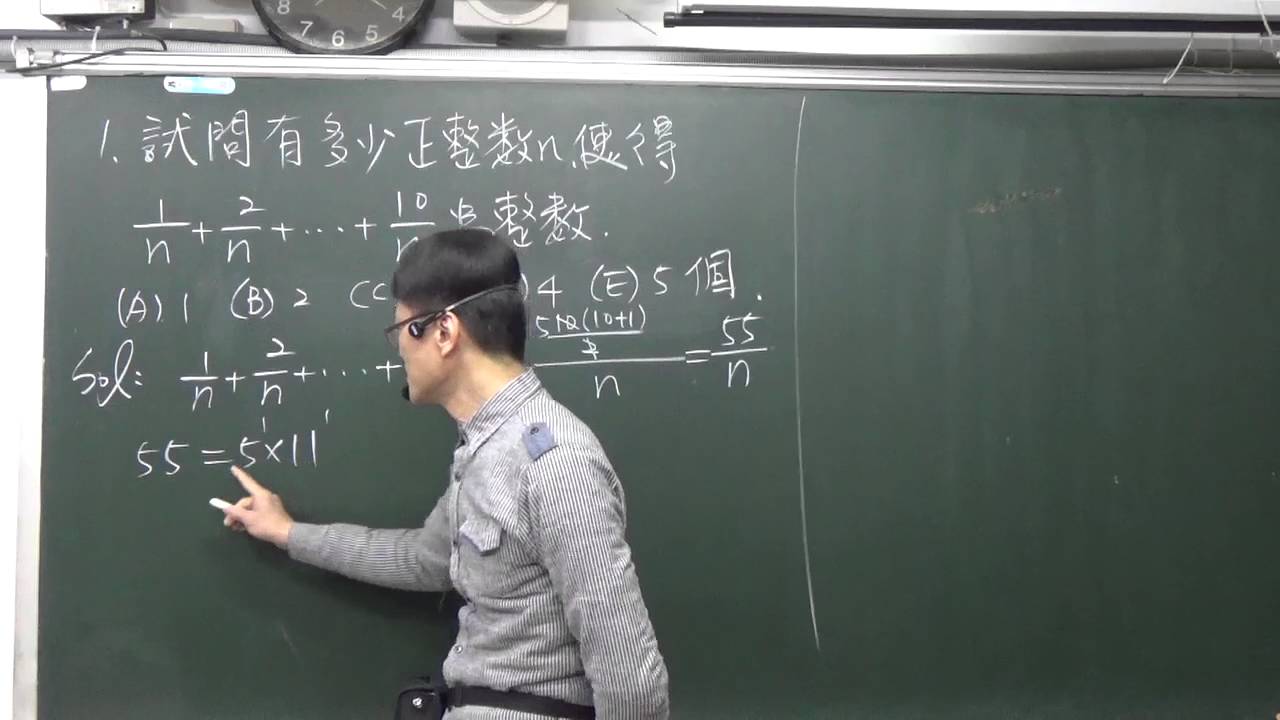 8 4
7 6 5
1. 試問有多少正整数n,使得
1/n + 2/n + ... + 10/n 為整数.
(A) 1 (B) 2 (C 4 (E) 5 個.
Sol: 1/n + 2/n + ... + 10(10+1)/2 / n = 55/n
55 = 5¹×11¹